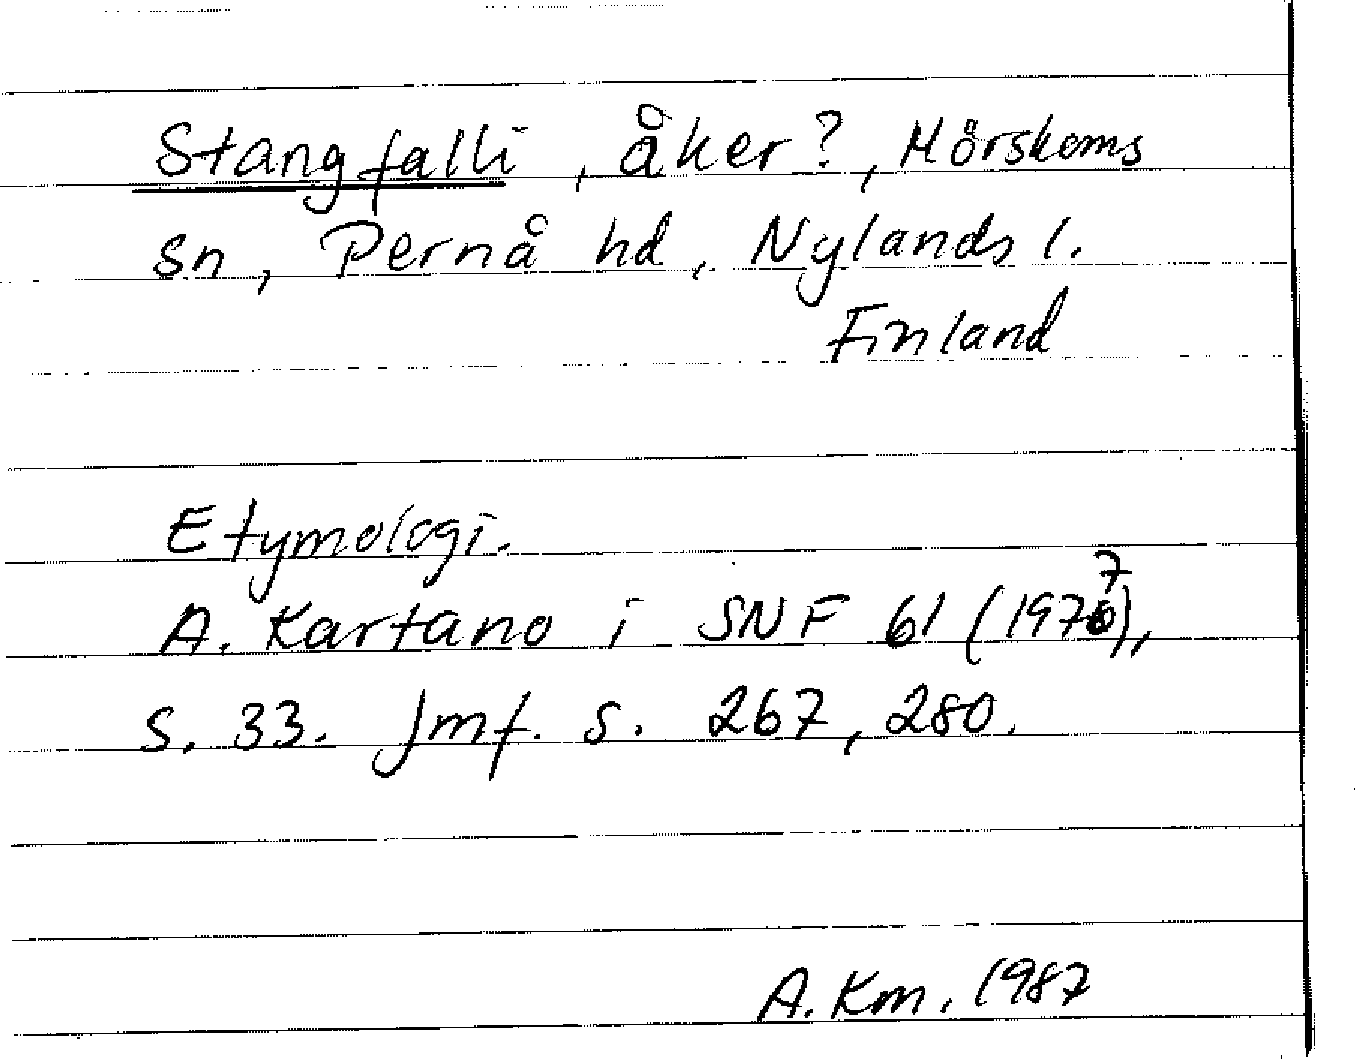 Stangfalli, åker?, Mörskoms
sn, Pernå hd, Nylands l.
Finland
Etymologi.
A. Kartano i SNF 61 (1977),
s. 33. Jmf. s. 267, 280.
A. Km. 1987